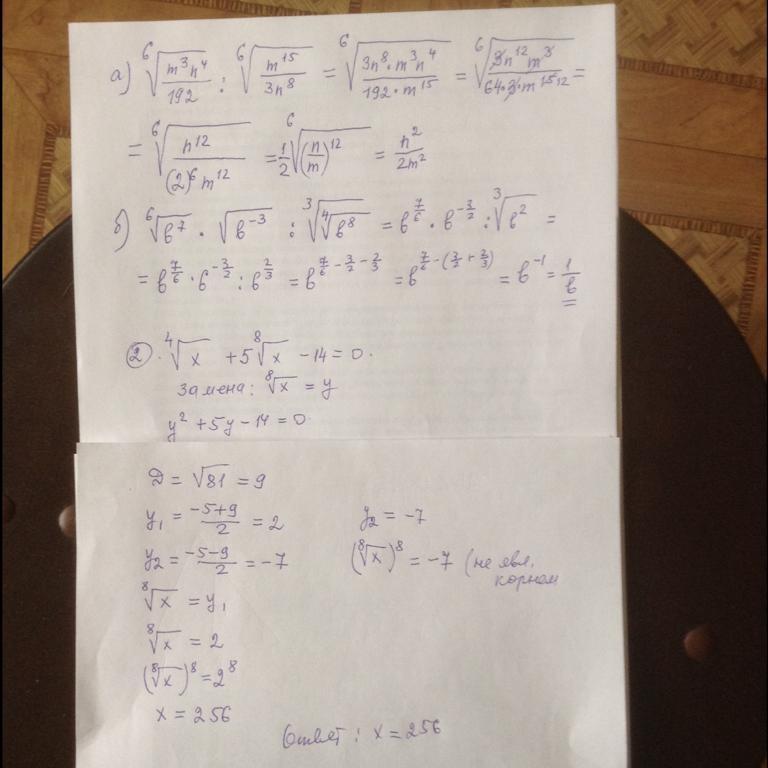 а) ⁶√(m³n⁴/192) : ⁶√(m¹⁵/3n⁸) = ⁶√(3n⁸·m³n⁴/192·m¹⁵) = ⁶√(3n¹²m³/64·3·m¹⁵ ¹²) =
= ⁶√(n¹²/(2)⁶m¹²) = 1/2 ⁶√(n/m)¹² = n²/2m²
б) ⁶√b⁷ · √b⁻³ : ³√⁴√b⁸ = b^(7/6) · b^(-3/2) : ³√b² =
= b^(7/6) · b^(-3/2) : b^(2/3) = b^(7/6 - 3/2 - 2/3) = b^(7/6 - (3/2 + 2/3)) = b⁻¹ = 1/b
②. ⁴√x + 5 ⁸√x - 14 = 0.
Замена: ⁸√x = y
y² + 5y - 14 = 0
D = √81 = 9
y₁ = (-5+9)/2 = 2
y₂ = (-5-9)/2 = -7
⁸√x = y₁
⁸√x = 2
(⁸√x)⁸ = 2⁸
x = 256
y₂ = -7
(⁸√x)⁸ = -7 (не явл.
корнем
Ответ: x = 256